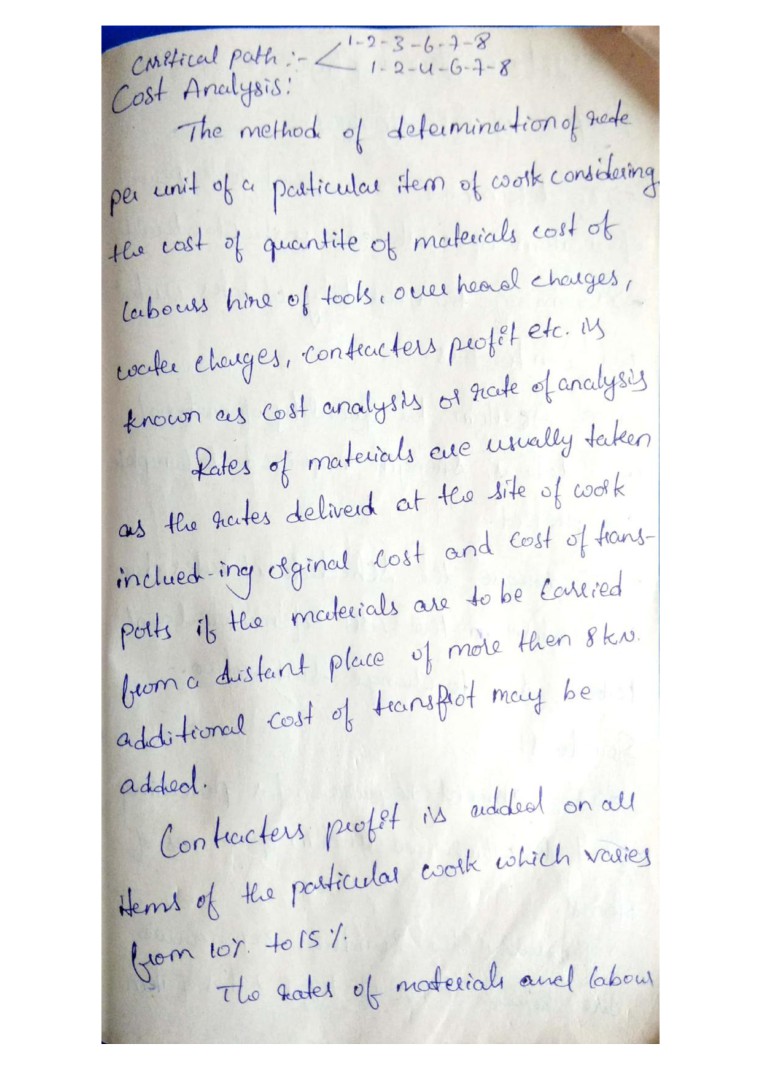 Critical path :- < 1-2-3-6-7-8
1-2-4-6-7-8
Cost Analysis:
The method of determination of rate
per unit of a particular item of work considering
the cost of quantite of materials cost of
labours hire of tools, over head charges,
water charges, contracters profit etc. is
known as cost analysis or rate of analysis
Rates of materials are usually taken
as the rates deliverd at the site of work
inclued-ing orginal cost and cost of trans-
ports if the materials are to be carried
from a distant place of more then 8 km.
additional cost of transprot may be
added.
Contracters profit is added on all
items of the particular work which varies
from 10% to 15 %.
The rates of materials and labour